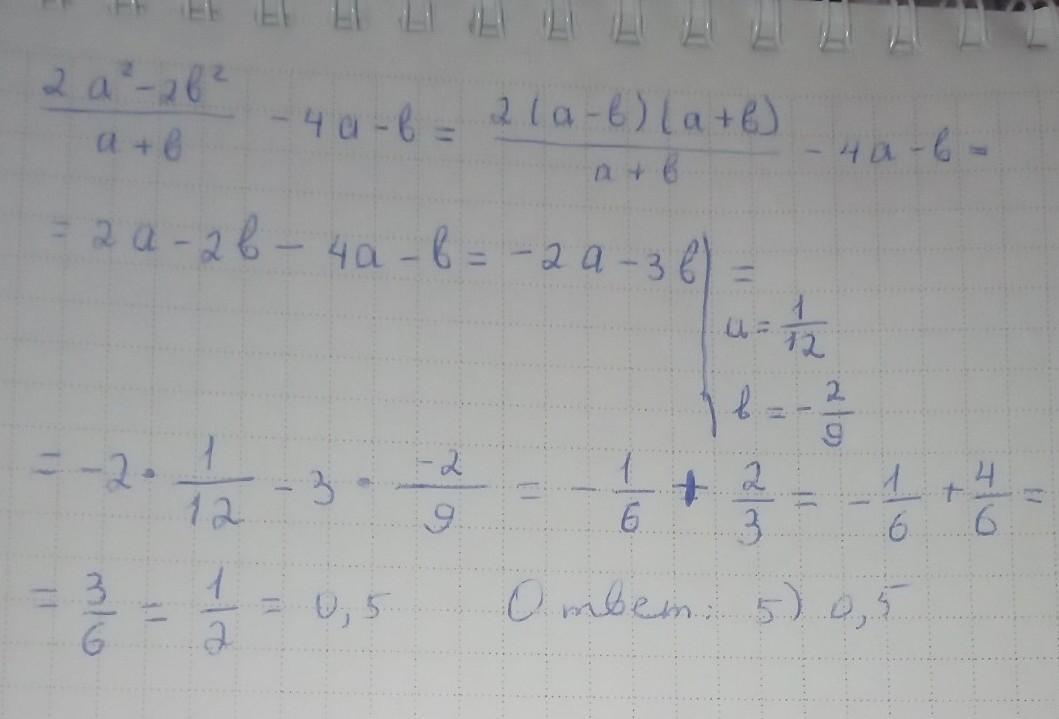 (2a² - 2в²)/(a + в) - 4a - в = 2(a - в)(a + в)/(a + в) - 4a - в =
= 2a - 2в - 4a - в = -2a - 3в | =
a = 1/12
в = -2/9
= -2 · 1/12 - 3 · -2/9 = -1/6 + 2/3 = -1/6 + 4/6 =
= 3/6 = 1/2 = 0,5 Ответ: 5) 0,5